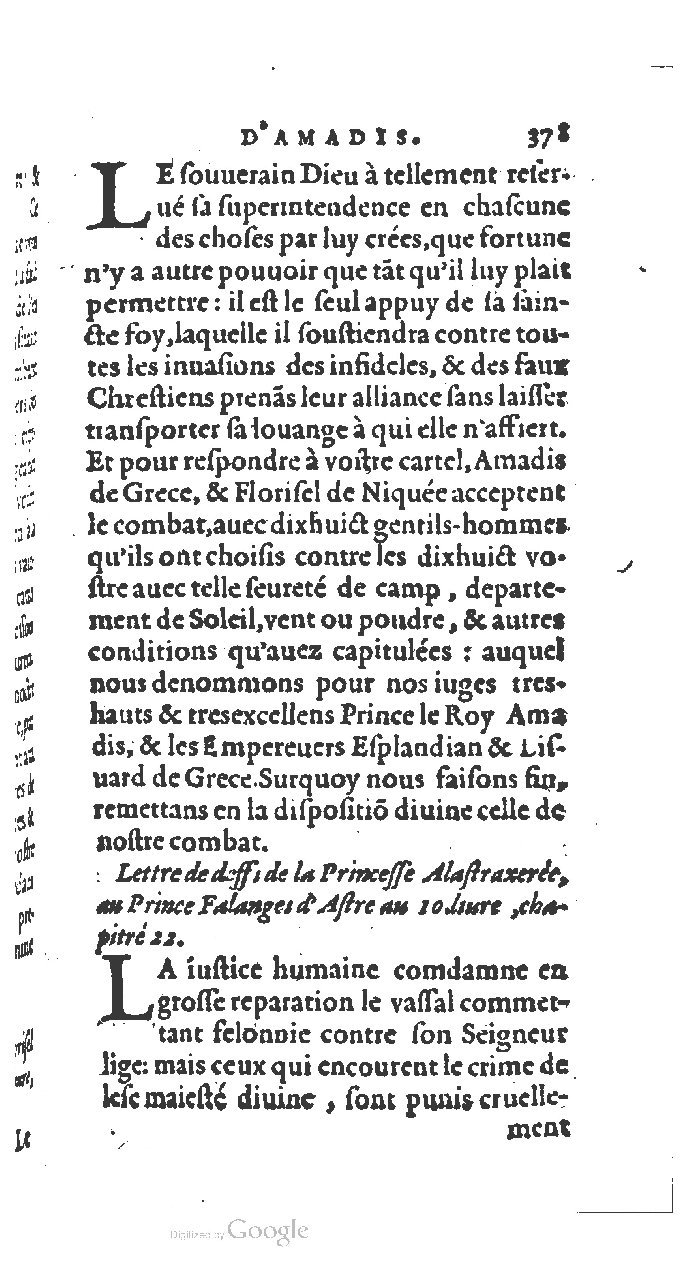 D'AMADIS. 378
LE ſouuerain Dieu à tellement reſer-
ué ſà ſuperintendence en chaſcune
des choſes par luy crées, que fortune
n'y a autre pouuoir que tāt qu'il luy plait
permettre : il eſt le ſeul appuy de ſà ſain-
cte foy, laquelle il ſouſtiendra contre tou-
tes les inuaſions des infideles, & des faux
Chreſtiens prenās leur alliance ſans laiſſer
tranſporter ſa louange à qui elle n'affiert.
Et pour reſpondre à voſtre cartel, Amadis
de Grece, & Floriſel de Niquée acceptent
le combat, auec dixhuict gentils-hommes
qu'ils ont choiſis contre les dixhuict vo-
ſtre auec telle ſeureté de camp, departe-
ment de Soleil, vent ou poudre, & autres
conditions qu'auez capitulées : auquel
nous denommons pour nos iuges tres-
hauts & tresexcellens Prince le Roy Ama
dis, & les Empereuers Eſplandian & Liſ-
uard de Grece. Surquoy nous faiſons fin,
remettans en la diſpoſitiō diuine celle de
noſtre combat.
Lettre de deffi de la Princeſſe Alaſtraxerée,
au Prince Falanges d'Aſtre au 10. liure, cha-
pitre 22.
LA iuſtice humaine comdamne en
groſſe reparation le vaſſal commet-
tant felonnie contre ſon Seigneur
lige: mais ceux qui encourent le crime de
leſe maieſté diuine, ſont punis cruelle-
ment
Le
Digitized by Google